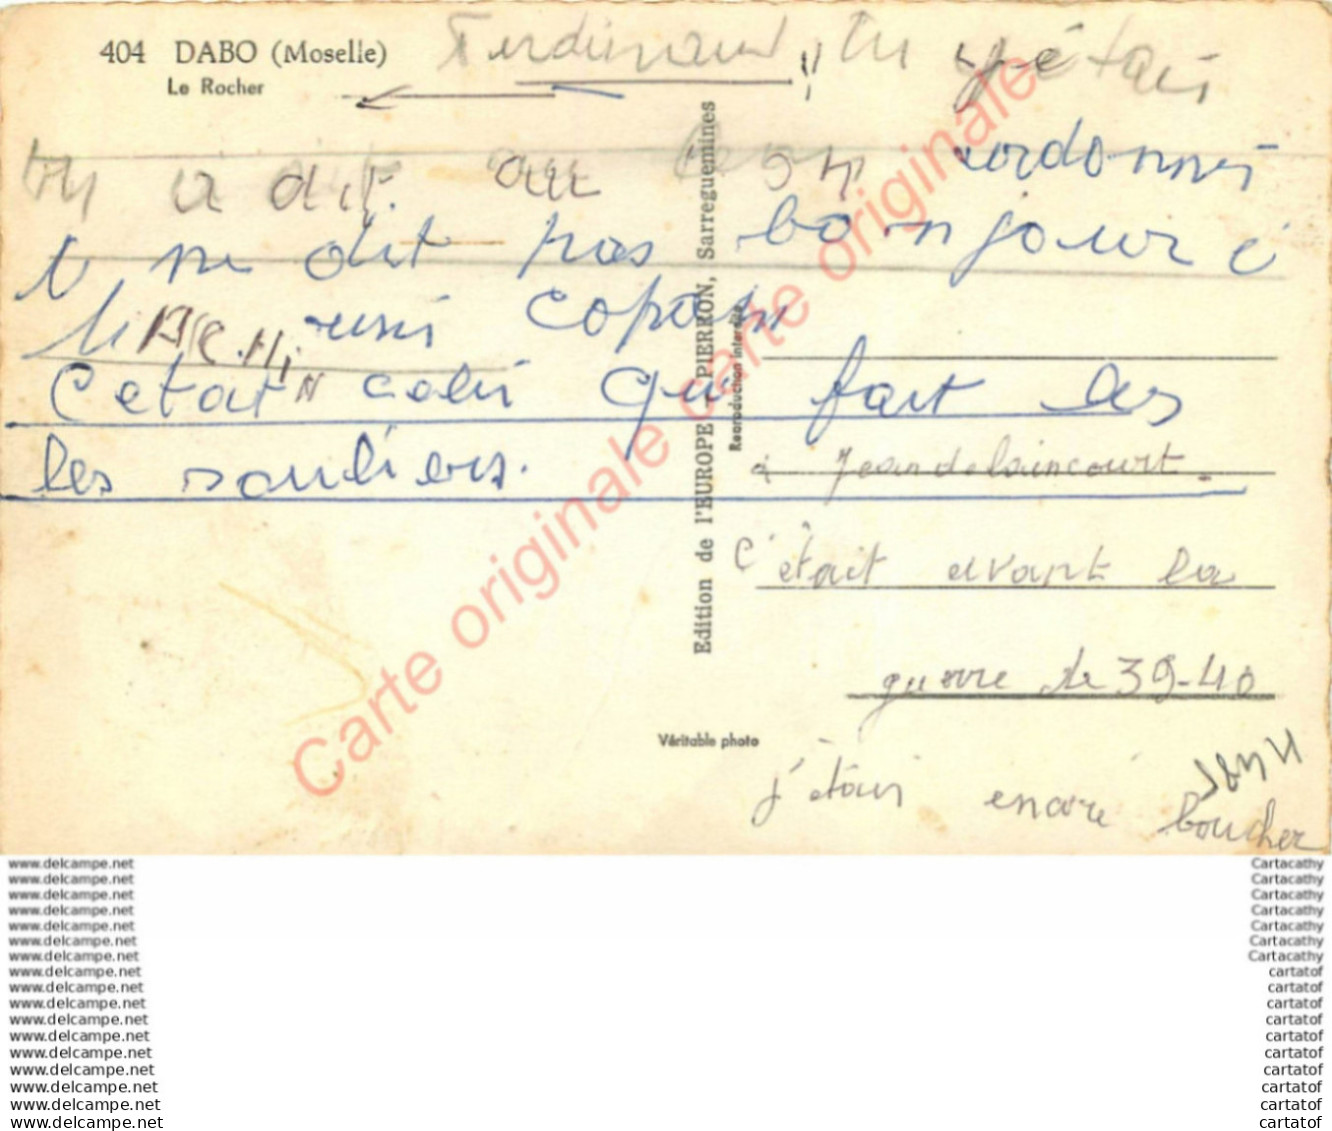 404 DABO (Moselle)
Le Rocher
Ferdinand, tu y étais
tu a dit au cordonni
ne dit pas bonjour
copain
C'etait celui qui fait les
les souliers.
à Jeandelaincourt
c'était avant la
guerre de 39-40
j'étais encore boucher
Edition de l'EUROPE PIERRON, Sarreguemines
Reproduction interdite
Véritable photo
Carte originale carte originale
www.delcampe.net
www.delcampe.net
www.delcampe.net
www.delcampe.net
www.delcampe.net
www.delcampe.net
www.delcampe.net
www.delcampe.net
www.delcampe.net
www.delcampe.net
www.delcampe.net
www.delcampe.net
www.delcampe.net
www.delcampe.net
www.delcampe.net
www.delcampe.net
www.delcampe.net
Cartacathy
Cartacathy
Cartacathy
Cartacathy
Cartacathy
Cartacathy
Cartacathy
cartatof
cartatof
cartatof
cartatof
cartatof
cartatof
cartatof
cartatof
cartatof
cartatof